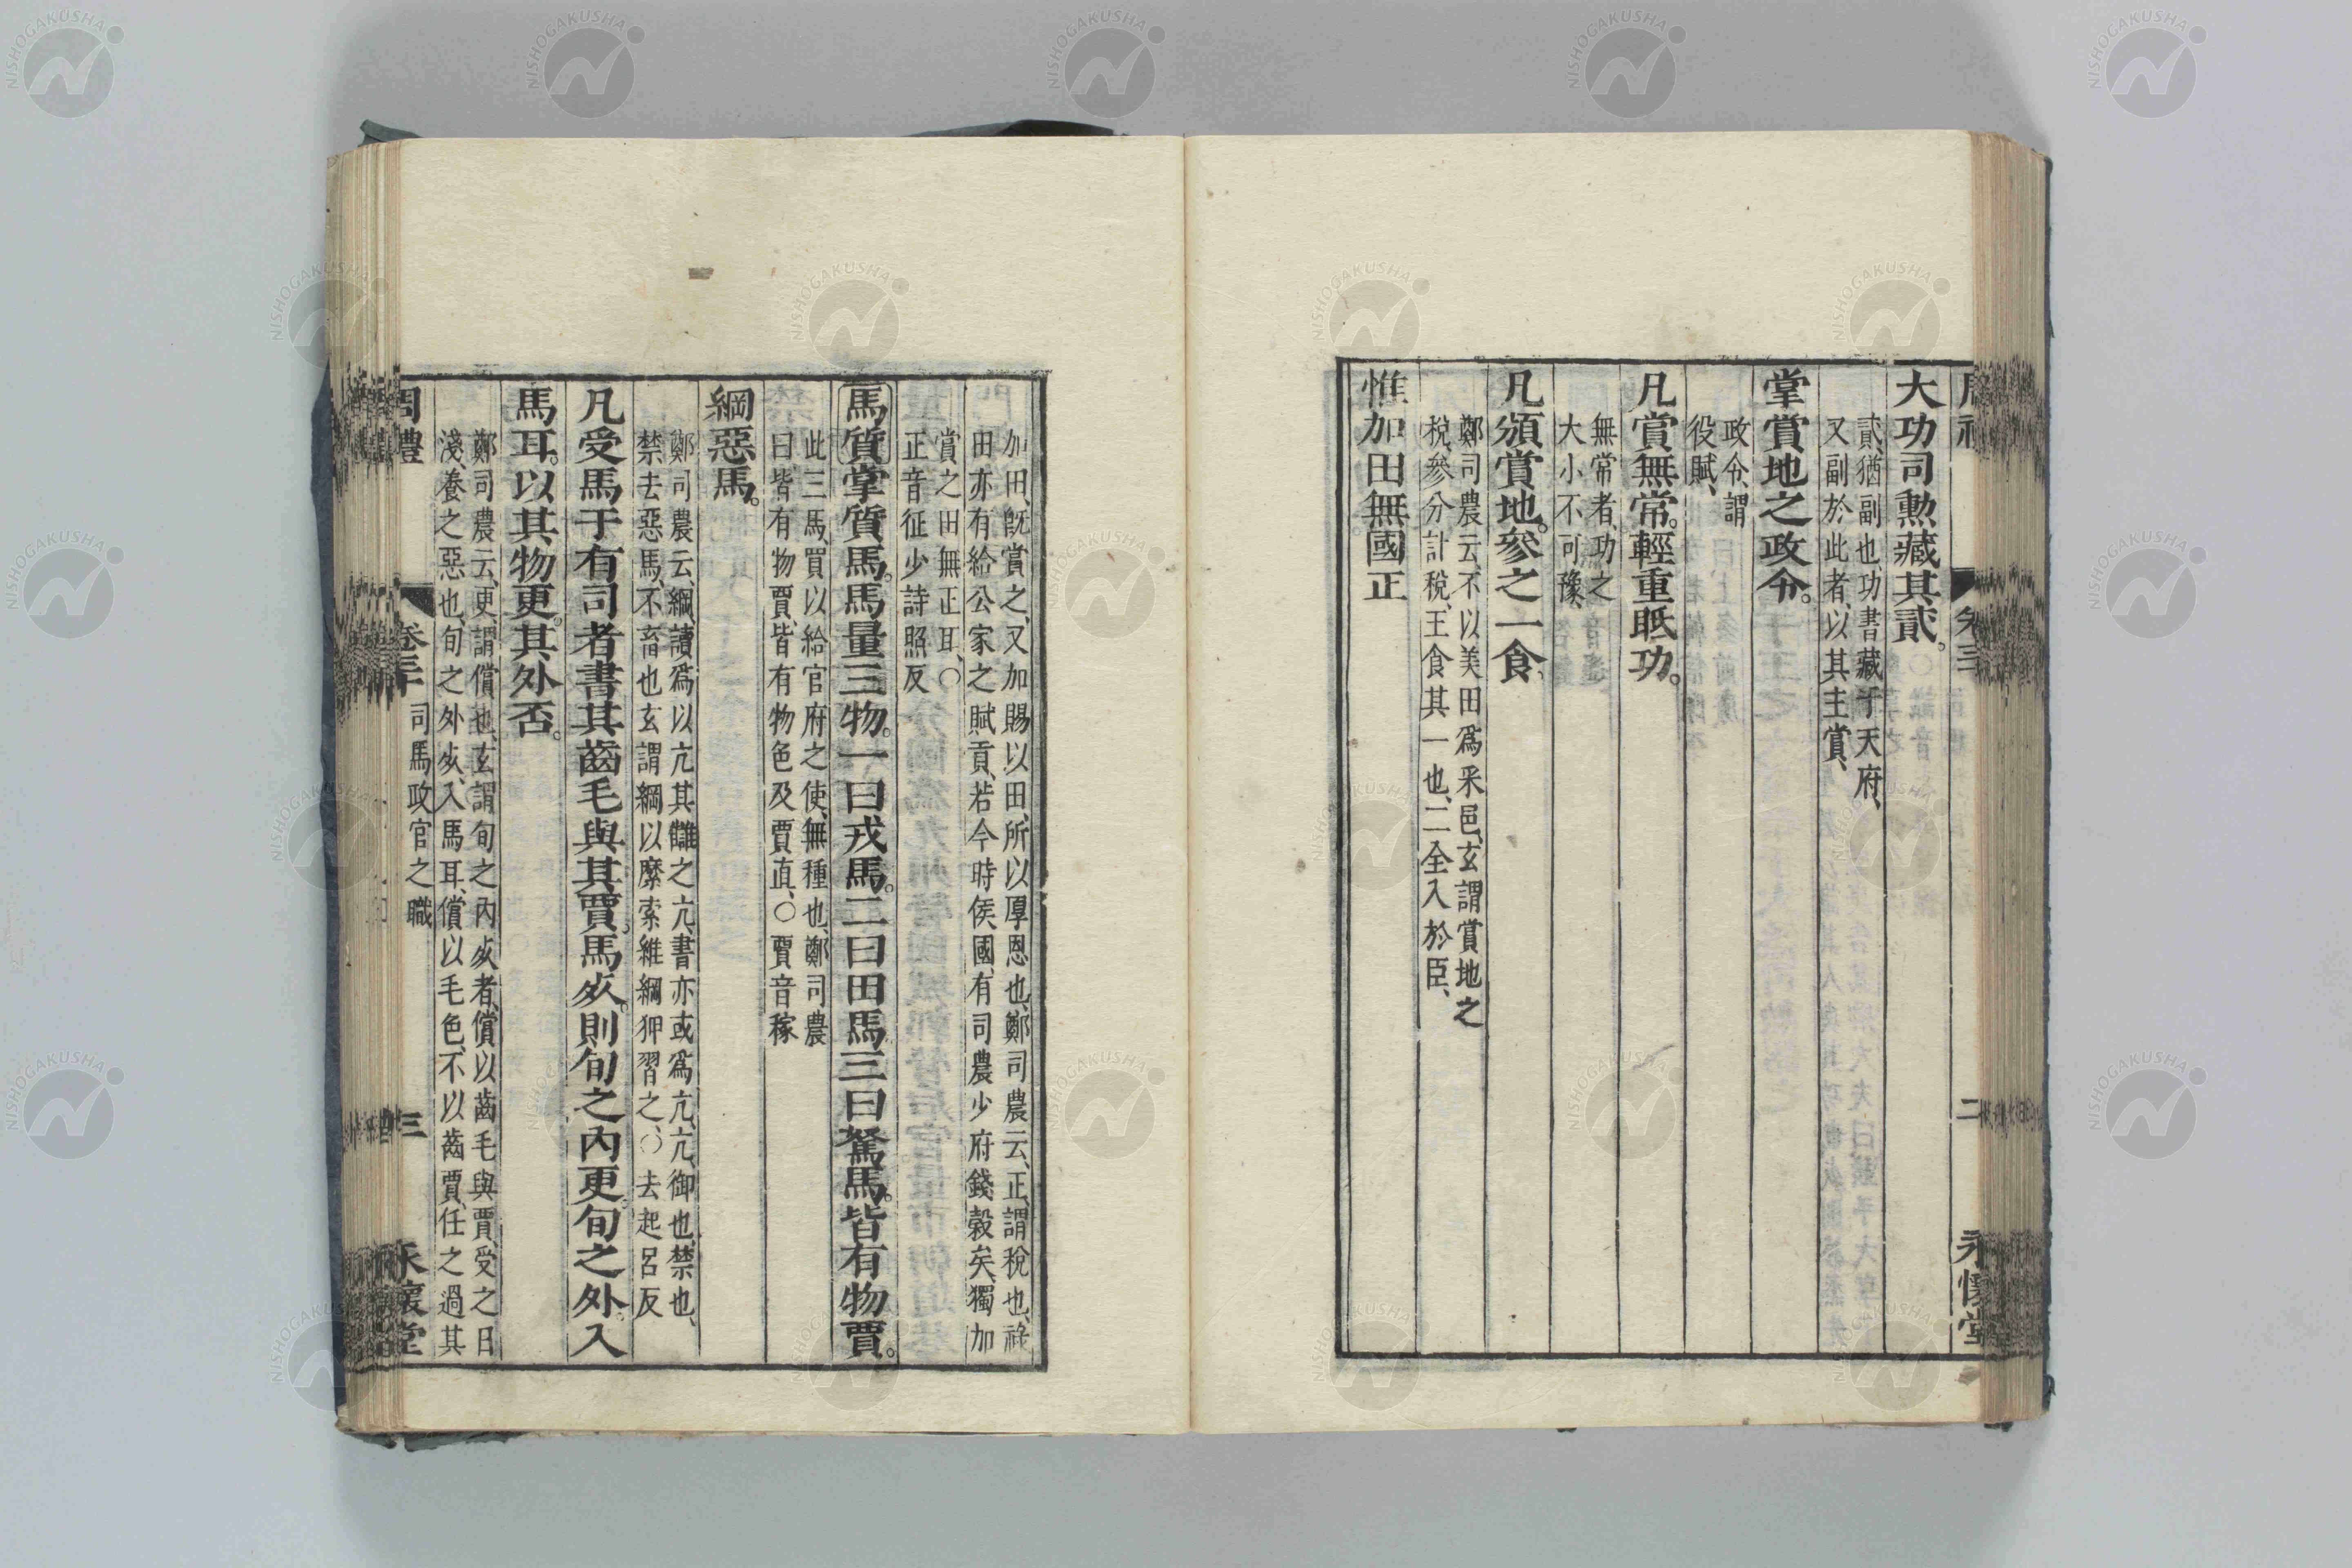 大功司勲藏其貳。
貳、猶副也、功書藏于天府、
又副於此者、以其主賞、
掌賞地之政令。
政令、謂
役賦、
凡賞無常。輕重眡功。
無常者、功之
大小不可豫、
凡頒賞地。參之一食、
鄭司農云、不以美田爲采邑、玄謂賞地之
稅、參分計稅、王食其一也、二全入於臣、
惟加田無國正
二
永懷堂
加田、旣賞之、又加賜以田、所以厚恩也、鄭司農云、正、謂稅也、祿
田亦有給公家之賦貢、若今時侯國、有司農少府錢穀矣、獨加
賞之田無正耳、○
正音征少詩照反
馬質掌質馬。馬量三物。一曰戎馬。二曰田馬。三曰駑馬。皆有物賈。
此三馬、買以給官府之使、無種也、鄭司農
曰、皆有物賈、皆有物色及賈直、○賈音稼
綱惡馬。
鄭司農云、綱、讀爲以亢其讎之亢、書亦或爲亢、亢、御也、禁也、
禁去惡馬、不畜也玄謂綱以縻索維綱狎習之、○去起呂反
凡受馬于有司者書其齒毛與其賈。馬歾。則旬之內更。旬之外。入
馬耳。以其物更。其外否。
鄭司農云、更、謂償也、玄謂旬之內歾者、償以齒毛與賈、受之日
淺、養之惡也、旬之外歾、入馬耳、償以毛色、不以齒賈、任之過其
周禮
卷三十
司馬政官之職
三
永懷堂